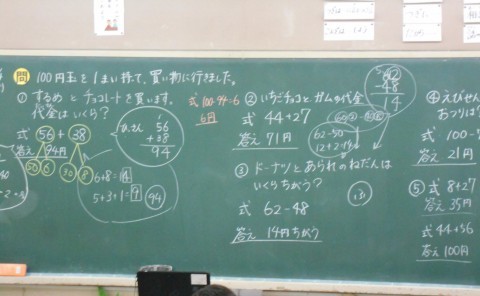 問 100円玉を1まい持って、買い物に行きました。
① するめとチョコレートを買います。
代金はいくら?
式 56+38
答え 94円
50 6 30 8
ひっさん 56
+38
94
6+8=14
5+3+1=9
94
式 100-94=6
6円
② いちごチョコとガムの代金
式 44+27
答え 71円
③ ドーナツとあられのねだんは
いくらちがう?
式 62-48
答え 14円ちがう
62
48
14
62-50
12+2=14
④ えびせん
おつりは?
式 100-7
答え 21円
⑤ 式 8+27
答え 35円
式 44+56
答え 100円